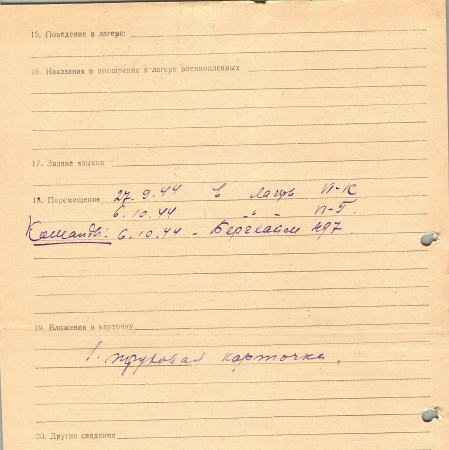 15. Поведение в лагере:
16. Наказания и поощрения в лагере военнопленных
17. Знание языков
18. Перемещения 27.9.44 в лагерь II-К
6.10.44 " - II-Г.
Команды: 6.10.44 - Бергхайм 497.
19. Вложения в карточку
1. трудовая карточка.
20. Другие сведения